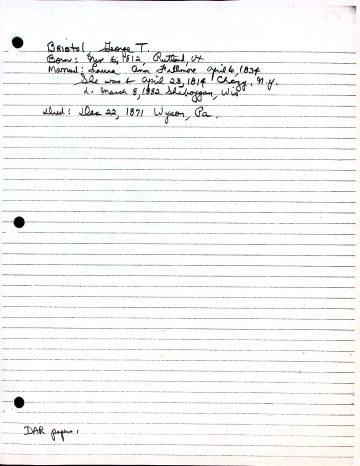 Bristol, George T.
Born: Nov 6, 1812, Rutland, Vt
Married: Laura Ann Fillmore April 6, 1834
She was b April 23, 1814 Chazy, N.Y.
d. March 8, 1882 Sheboygan, Wis
died: Dec 22, 1871 Wysox, Pa.
DAR papers.